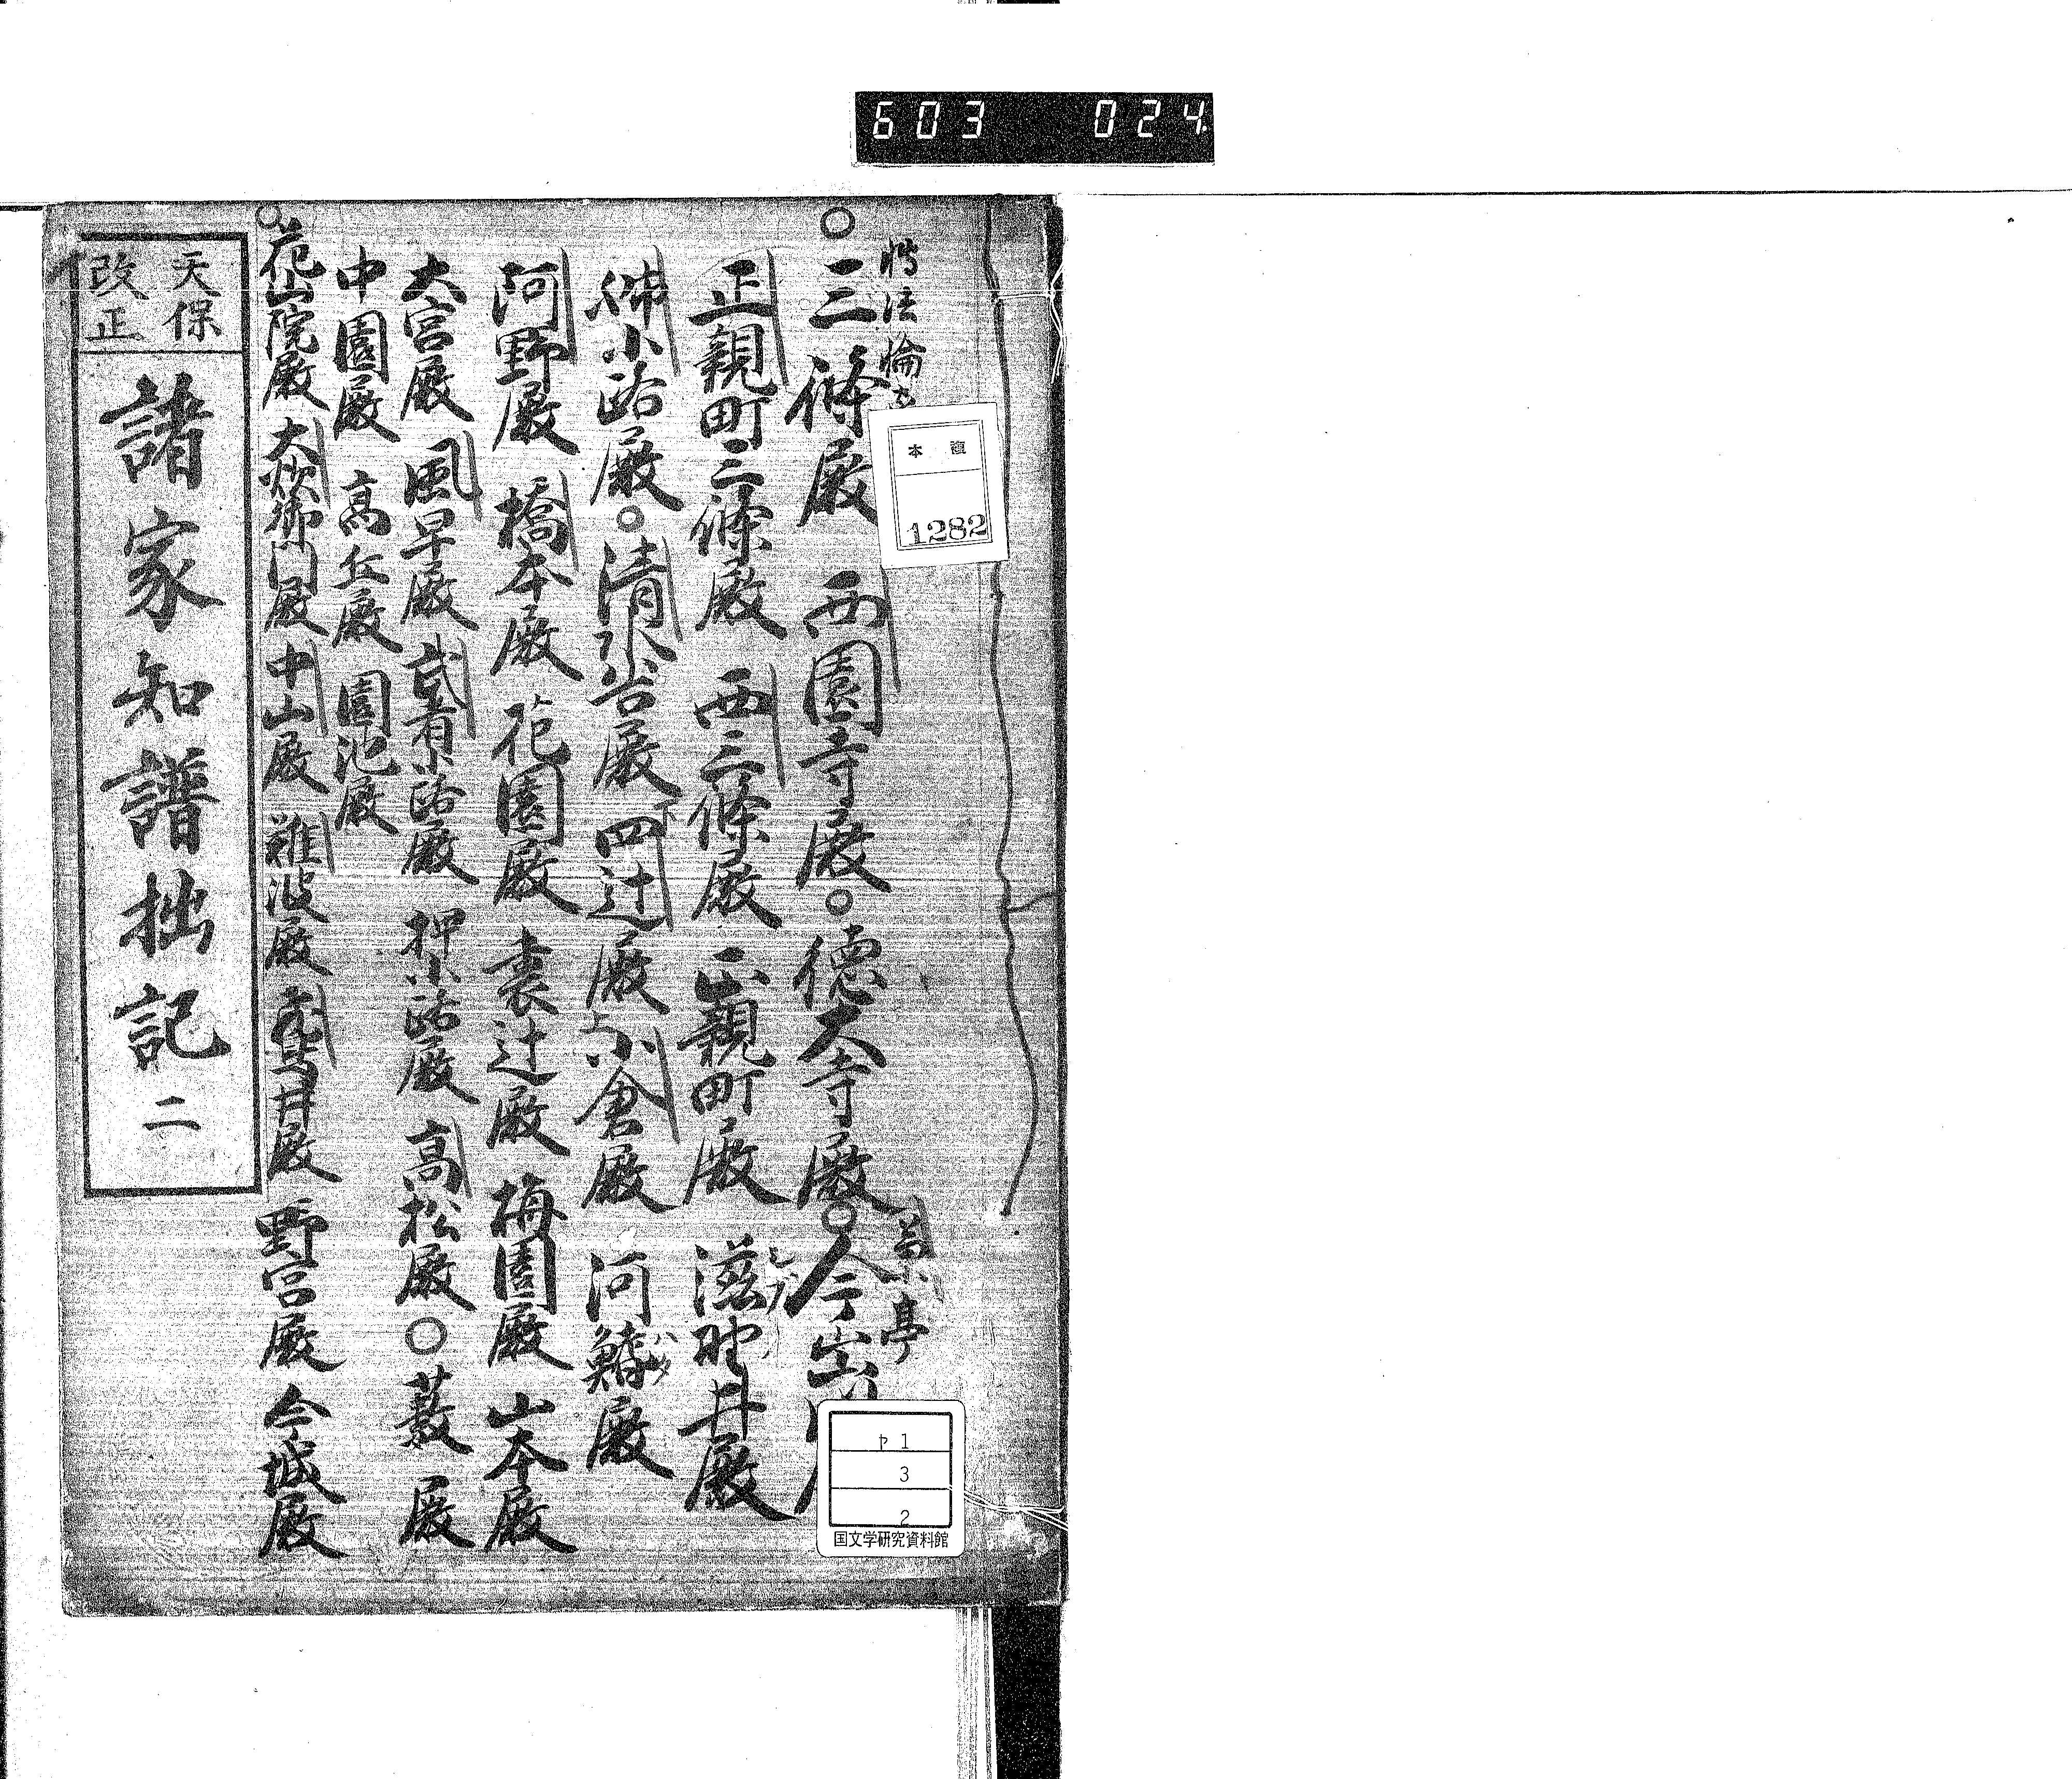 603 024
轉法輪
○三條殿 西園寺殿○德大寺殿○今出
菊亭
正親町三條殿 西三條殿 正親町殿 滋野井殿
シゲノ
姉小路殿○清水谷殿 四辻殿 小倉殿 河鰭殿
ハタ
阿野殿 橋本殿 花園殿 裏辻殿 梅園殿 山本殿
大宮殿 風早殿 武者小路殿 押小路殿 高松殿○藪殿
中園殿 高丘殿 園池殿
○花山院殿 大炊御門殿 中山殿 難波殿 飛鳥井殿 野宮殿 今城殿
天保
改正
諸家知譜拙記 二
本
1282
ヤ1
3
2
国文学研究資料館